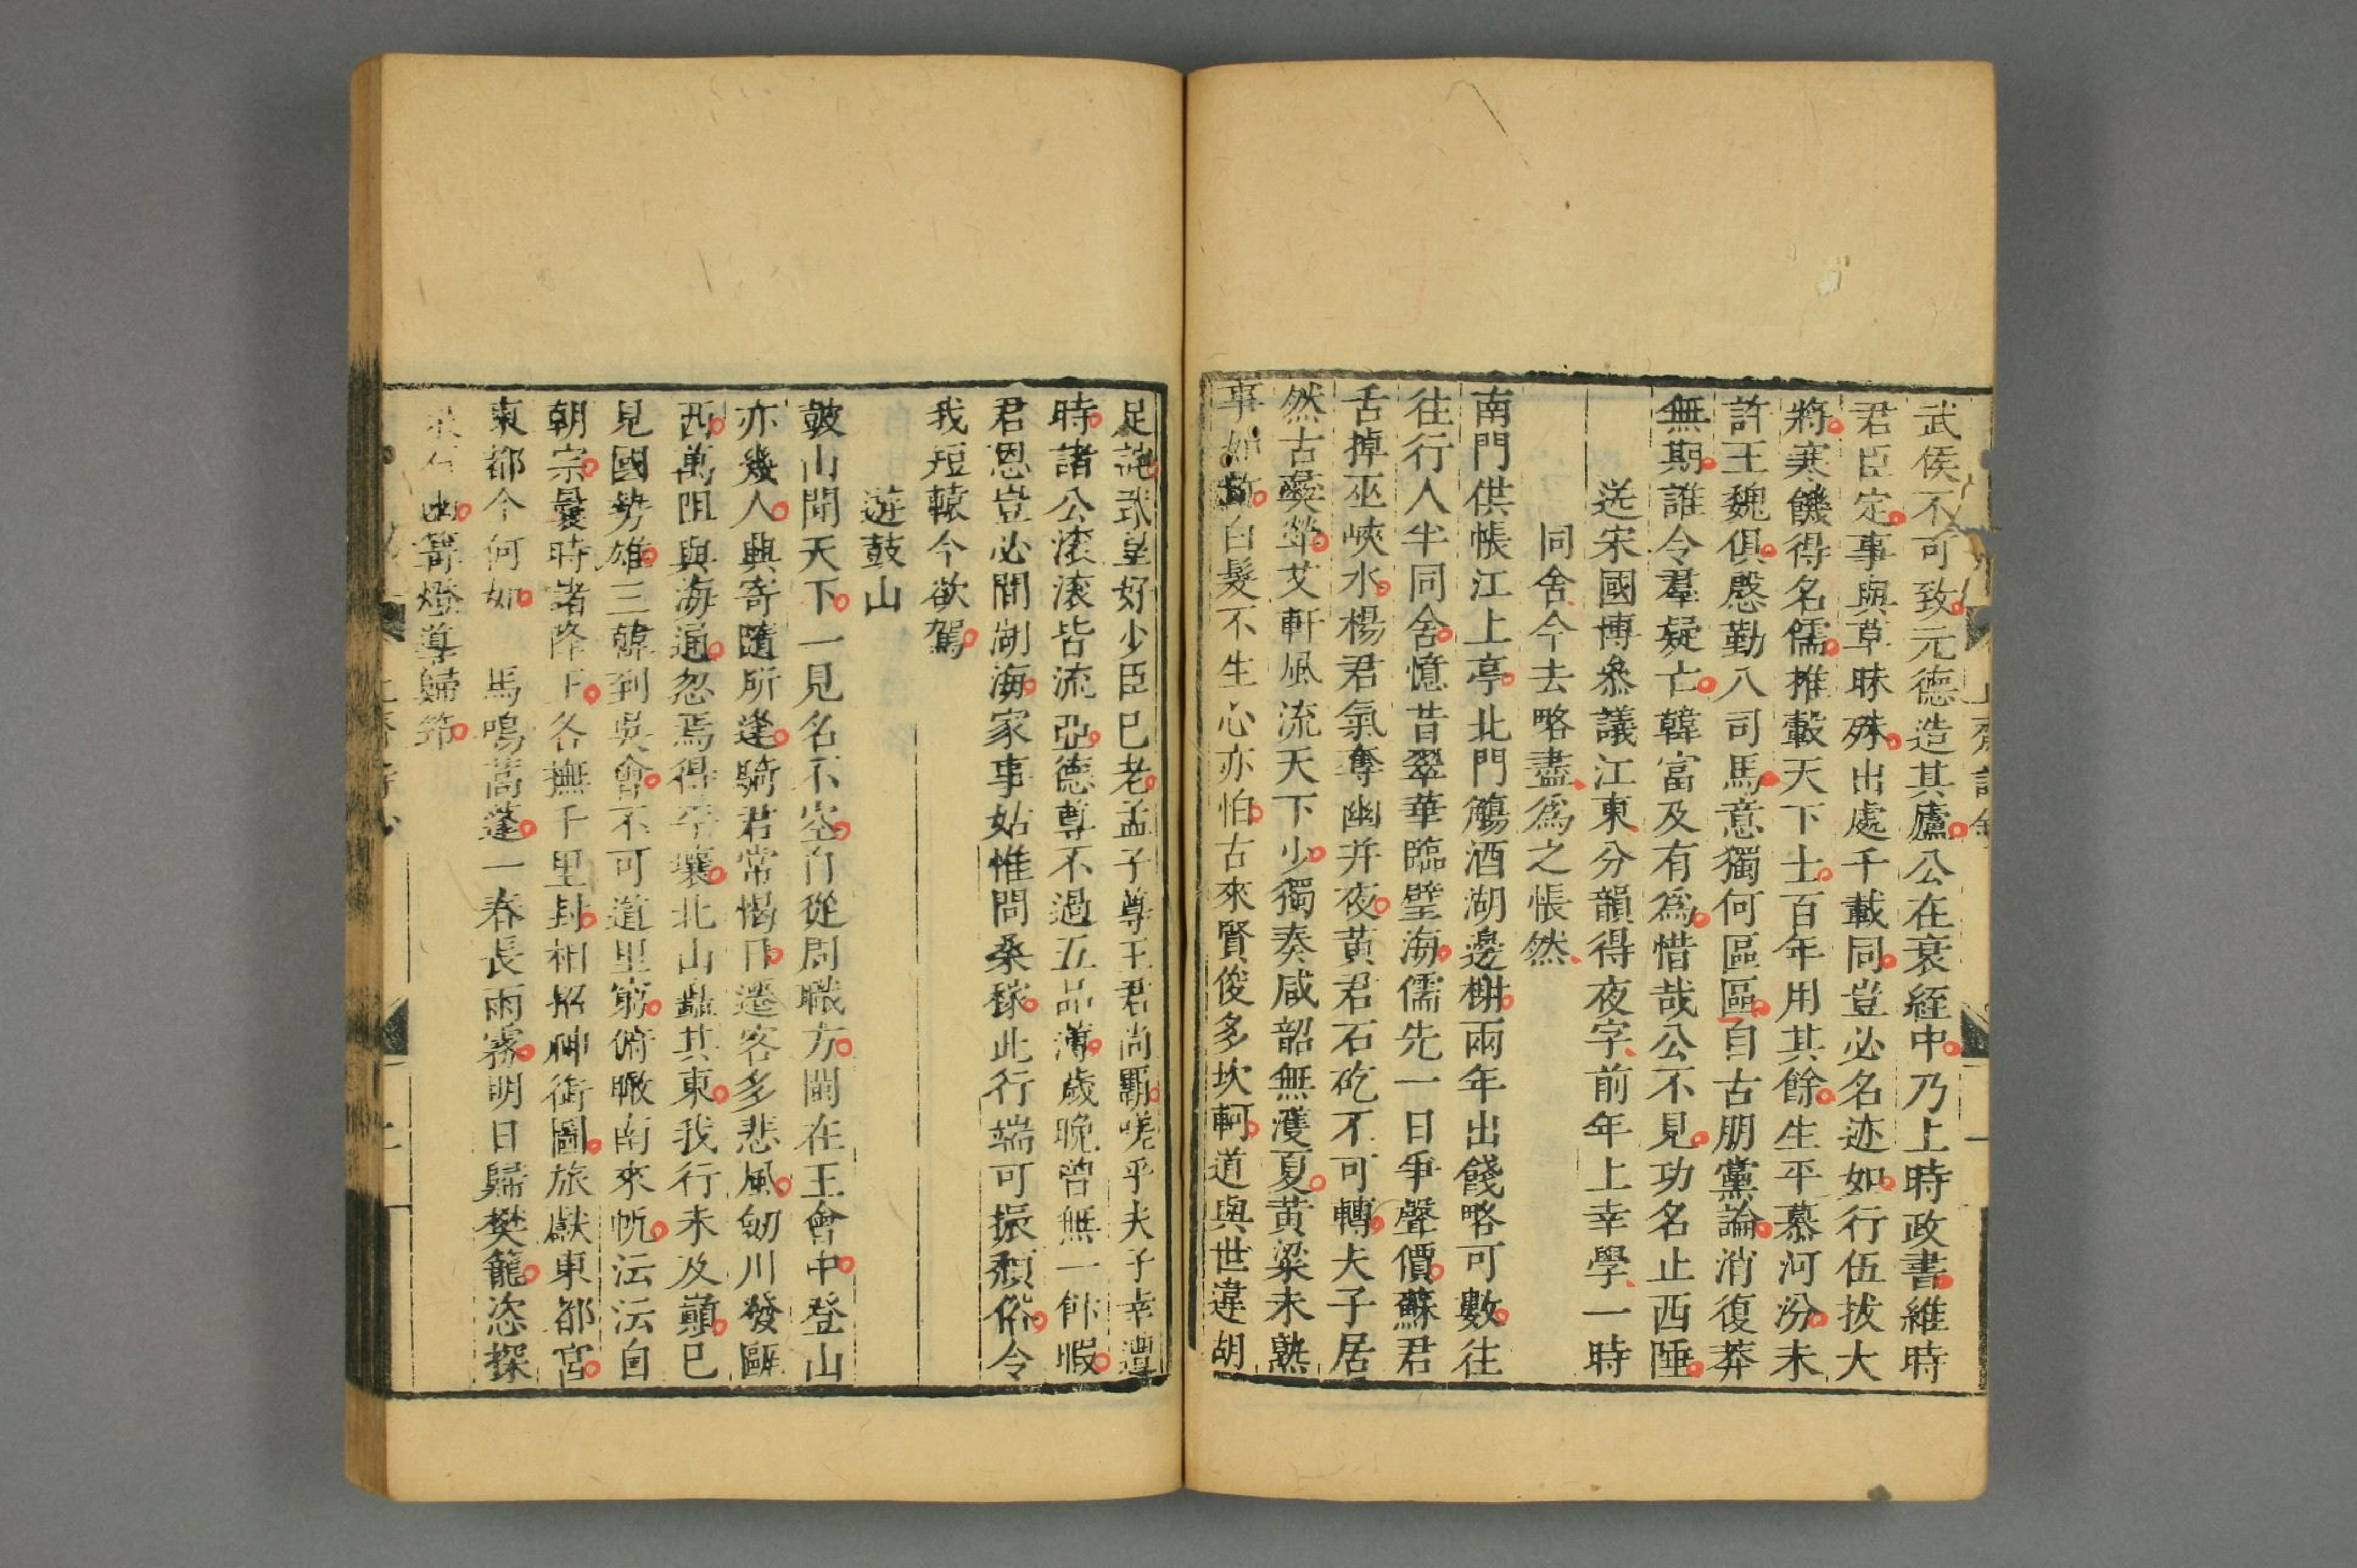 武侯不可致元德造其廬公在衰絰中乃上時政書維時
君臣定事與草昧殊出處千載同豈必名迹如行伍拔大
將寒饑得名儒推轂天下士百年用其餘生平慕河汾未
許王魏俱慇勤八司馬意獨何區區自古朋黨論消復莽
無期誰令羣疑亡韓富及有爲惜哉公不見功名止西陲
送宋國博叅議江東分韻得夜字前年上幸學一時
同舍今去略盡爲之悵然
南門供帳江上亭北門觴酒湖邊榭兩年出餞略可數往
往行人半同舍憶昔翠華臨璧海儒先一日爭聲價蘇君
舌掉巫峽水楊君氣奪幽并夜黃君石矻不可轉夫子居
然古彝斝艾軒風流天下少獨奏咸韶無濩夏黃粱未熟
事如許白髮不生心亦怕古來賢俊多坎軻道與世違胡
足詫武皇好少臣巳老孟子尊王君尚霸嗟乎夫子幸遭
時諸公滚滚皆流亞德尊不過五品薄歲晚曾無一餉暇
君恩豈必間湖海家事姑惟問桑稼此行端可振頽俗令
我短轅今欲駕
遊鼓山
鼓山聞天下一見名不空自從周職方閩在王會中登山
亦幾人興寄隨所逢騎君常愒日遷客多悲風劒川發甌
西萬阻與海通忽焉得平壤北山矗其東我行未及巔巳
見國勢雄三韓到吳會不可道里窮俯瞰南來帆沄沄自
朝宗曩時諸降王各撫千里封相招神衒圖旅獻東都宮
東都今何如 馬鳴蒿蓬一春長雨霧明日歸樊籠恣探
泉石幽篝燈導歸筇